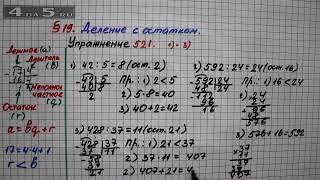 § 19. Деление с остатком.
Упражнение 521. 1)-3)
Делимое (a)
Делитель (b)
17 | 4
16 | 4
1
Неполное частное (q)
Остаток (r)
a = bq + r
17 = 4·4 + 1
r < b
1) 42 : 5 = 8 (ост. 2)
42 | 5
40 | 8
2
Пр.: 1) 2 < 5
2) 5·8 = 40
3) 40 + 2 = 42
2) 592 : 24 = 24 (ост. 16)
592 | 24
48 | 24
Пр.: 1) 16 < 24
3) 576 + 16 = 592
3) 428 : 37 = 11 (ост. 21)
428 | 37
37 | 11
58
37
21
Пр.: 1) 21 < 37
2) 37·11 = 407
3) 407 + 21 = 4